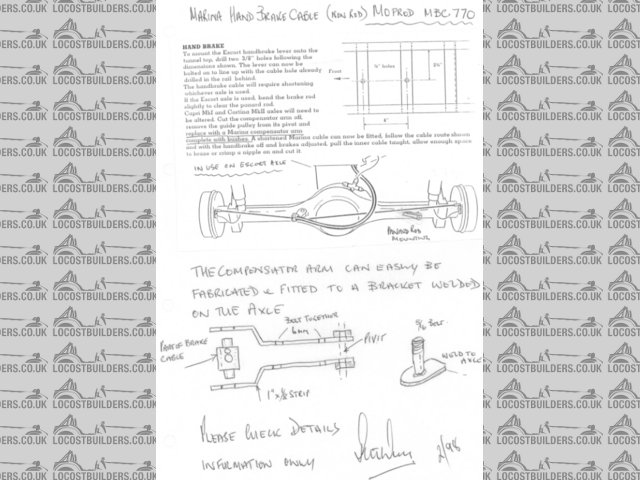 MARINA HAND BRAKE CABLE (NON ROD) MOPROD MBC.770
HAND BRAKE
To mount the Escort handbrake lever onto the
tunnel top, drill two 3/8" holes following the
dimensions shown. The lever can now be
bolted on to line up with the cable hole already
drilled in the rail behind.
The handbrake cable will require shortening
whichever axle is used.
If the Escort axle is used, bend the brake rod
slightly to clear the panard rod.
Capri MkI and Cortina MkII axles will need to
be altered. Cut the compensator arm off,
remove the guide pulley from its pivot and
replace with a Marina compensator arm
complete with bushes. A shortened Marina cable can now be fitted, follow the cable route shown
and with the handbrake off and brakes adjusted, pull the inner cable taught, allow enough space
to braze or crimp a nipple on and cut it.
Front
holes
IN USE ON ESCORT AXLE
PANARD ROD
MOUNTING
THE COMPENSATOR ARM CAN EASILY BE
FABRICATED & FITTED TO A BRACKET WELDED
ON THE AXLE
BOLT TOGETHER
6mm
5/16 BOLT
BRAKE
CABLE
PIVIT
WELD TO
AXLE
1" x 1/8 STRIP
PLEASE CHECK DETAILS
INFORMATION ONLY
2/98
LOCOSTBUILDERS.CO.UK